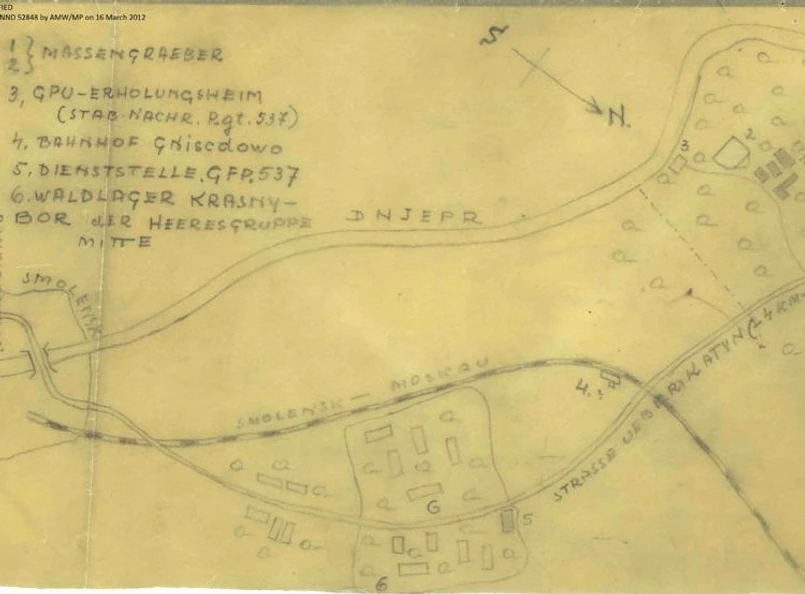 FIED
NND 52848 by AMW/MP on 16 March 2012
1 } MASSENGRAEBER
2 }
3, GPU-ERHOLUNGSHEIM
(STAB NACHR. Rgt. 537)
4, BAHNHOF GNIScDOWO
5, DIENSTSTELLE, GFP. 537
6. WALDLAGER KRASNY-
BOR dER HEERESGRUPPE
MITTE
S
N.
2
3
DNJEPR
SMOLENSK
SMOLENSK — MOSKAU
4.
STRASSE UEBER KATYN
6
5
6